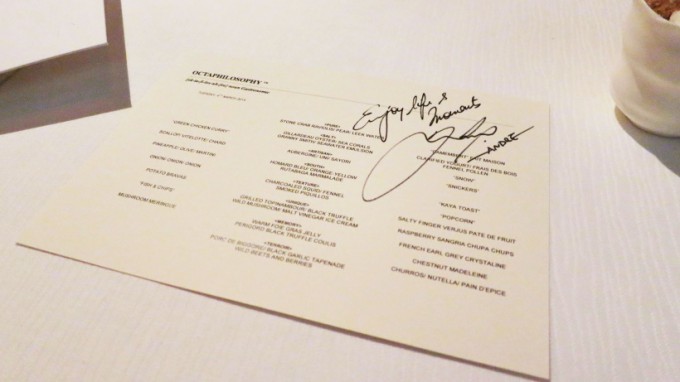 OCTAPHILOSOPHY ™
Enjoy life &
Moments
ANDRÉ
'GREEN CHICKEN CURRY'
VITELOTTE/
PINEAPPLE/ OLIVE/ MARTINI
ONION/ ONION/ ONION
POTATO BRAVAS
'FISH & CHIPS'
MUSHROOM MERINGUE
<PURE>
STONE CRAB RAVIOLI/ PEAR/ LEEK
<SALT>
GILLARDEAU OYSTER/ SEA CORALS
GRANNY SMITH/ SEAWATER EMULSION
<ARTISAN>
AUBERGINE/ UNE SATORI
<SOUTH>
HOMARD BLEU/ ORANGE YELLOW
RUTABAGA MARMALADE
<TEXTURE>
CHARCOALED SQUID/ FENNEL
SMOKED PIQUILLOS
<UNIQUE>
GRILLED TOPINAMBOUR/ BLACK TRUFFLE
WILD MUSHROOM/ MALT VINEGAR ICE CREAM
<MEMORY>
WARM FOIE GRAS JELLY
PERIGORD BLACK TRUFFLE COULIS
<TERROIR>
PORC DE BIGORRE/ BLACK GARLIC TAPENADE
WILD BEETS AND BERRIES
CAMEMBERT MAISON
CLARIFIED YOGURT/ FRAIS DES BOIS
FENNEL POLLEN
'SNOW'
'SNICKERS'
'KAYA TOAST'
'POPCORN'
SALTY FINGER VERJUS PATE DE FRUIT
RASPBERRY SANGRIA CHUPA CHUPS
FRENCH EARL GREY CRYSTALINE
CHESTNUT MADELEINE
CHURROS/ NUTELLA/ PAIN D'EPICE